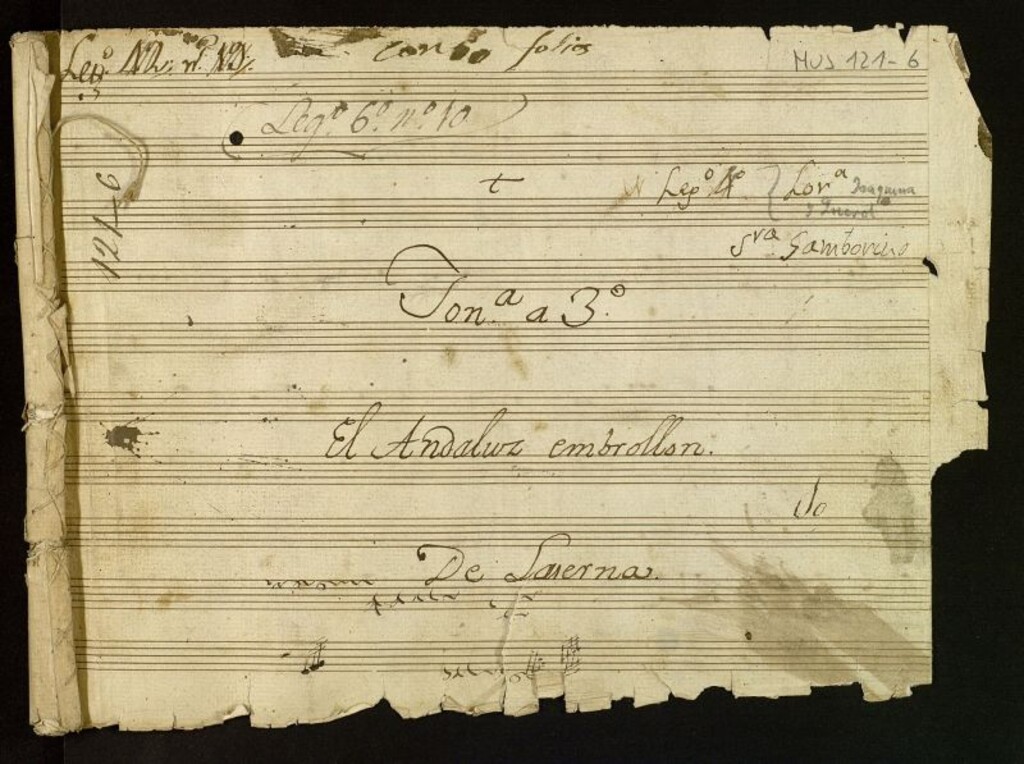 Leg.º 12. n.º 12. con 60 folios
MUS 121-6
Leg.º 6.º n.º 10
121-6
t
Leg.º 4.º Lor.ª Joaquina
Sra Gamborino
Ton.ª a 3.º
El Andaluz embrollon.
De Laserna.